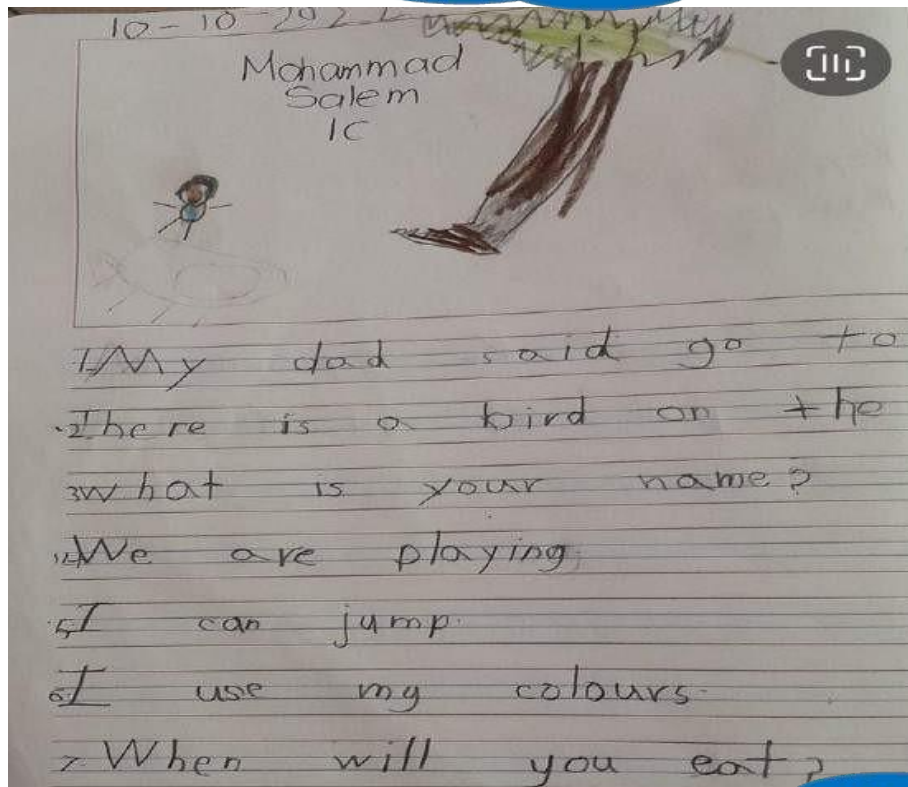 10-10-2022
Mohammad
Salem
1C
1. My dad said go to
2. There is a bird on the
3 What is your name?
4. We are playing
5. I can jump.
6. I use my colours.
7. When will you eat?